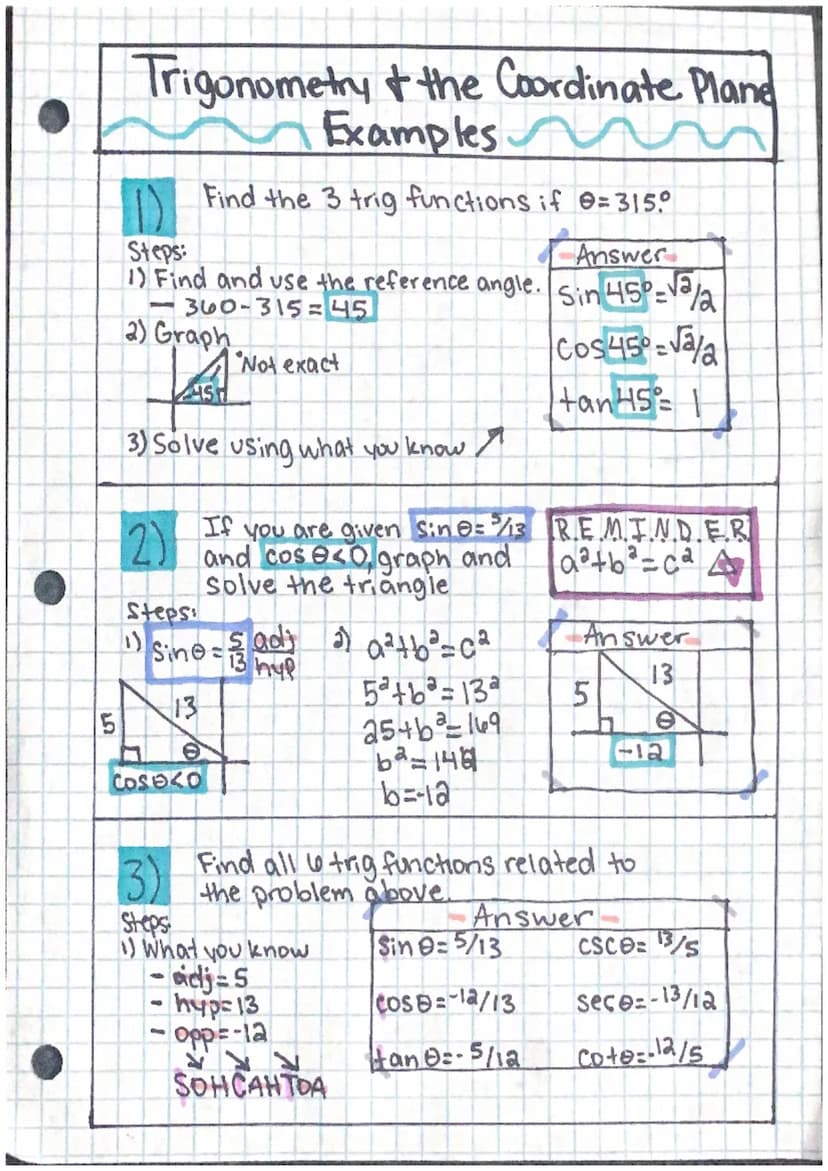 Trigonometry + the Coordinate Plane
Examples
1) Find the 3 trig functions if θ=315°
Steps:
1) Find and use the reference angle.
- 360-315=45
2) Graph
*Not exact
45
3) Solve using what you know ↗
Answer
Sin 45°=√2/2
Cos 45°=√2/2
tan 45°= 1
2) If you are given sin θ= 5/13
and cos θ<0, graph and
solve the triangle
R.E.M.I.N.D.E.R
a²+b²=c²
Steps:
1) Sinθ = 5/13 adj/hyp
5
13
θ
cosθ<0
2) a²+b²=c²
5²+b²=13²
25+b²=169
b²=144
b=-12
Answer
5
13
θ
-12
3) Find all 6 trig functions related to
the problem above.
Steps
1) What you know
- adj=5
- hyp=13
- opp=-12
SOHCAHTOA
Answer
Sin θ= 5/13 cscθ= 13/5
cosθ=-12/13 secθ=-13/12
tanθ=-5/12 cotθ=-12/5